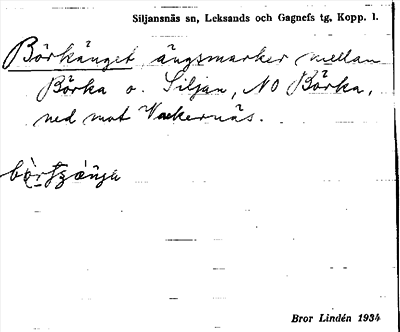 Siljansnäs sn, Leksands och Gagnefs tg, Kopp. l.
Börkänget, ängsmarker mellan
Börka o. Siljan, NO Börka,
ned mot Vakernäs.
Bror Lindén 1934